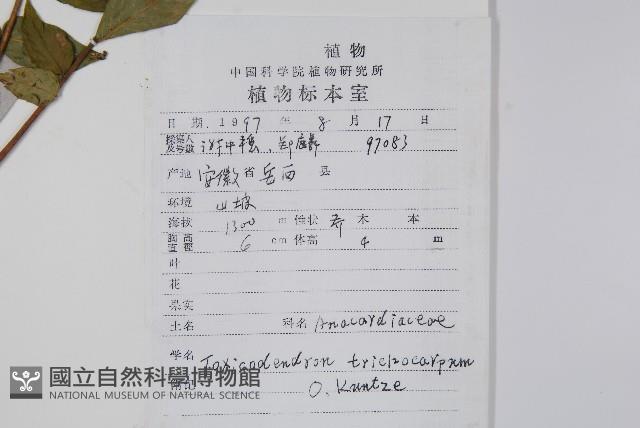 植物
中国科学院植物研究所
植物标本室
日期 1997 年 8 月 17 日
採集人及号数 97083
产地 安徽省岳西县
环境 山坡
海拔 1300 m 性状 乔木 本
胸高直径 6 cm 体高 4 m
叶
花
果实
土名 科名 Anacardiaceae
学名 Toxicodendron trichocarpum
附记 O. Kuntze
國立自然科學博物館
NATIONAL MUSEUM OF NATURAL SCIENCE